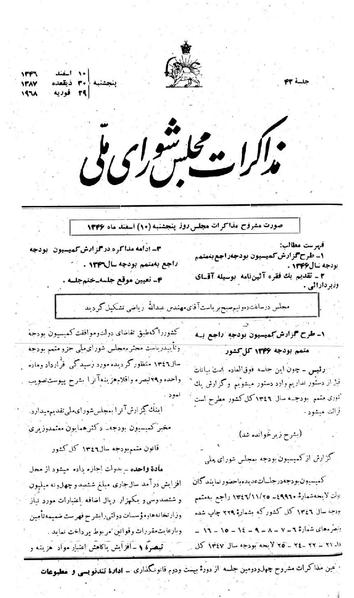 جلسهٔ ۴۳
پنجشنبه
۱۰ اسفند ۱۳۴۶
۳۰ ذیقعده ۱۳۸۷
۲۹ فوریه ۱۹۶۸
مذاکرات مجلس شورای ملی
صورت مشروح مذاکرات مجلس روز پنجشنبه (۱۰) اسفند ماه ۱۳۴۶
فهرست مطالب:
۱- طرح گزارش کمیسیون بودجه راجع به متمم
بودجه سال ۱۳۴۶.
۲- تقدیم یک فقره آئین‌نامه بوسیله آقای
وزیر دارائی.
۳- ادامه مذاکره در گزارش کمیسیون بودجه
راجع به متمم بودجه سال ۱۳۴۶.
۴- تعیین موقع جلسه - ختم جلسه.
مجلس در ساعت ده و نیم صبح بریاست آقای مهندس عبدالله ریاضی تشکیل گردید
۱- طرح گزارش کمیسیون بودجه راجع به
متمم بودجه ۱۳۴۶ کل کشور
رئیس - چون این جلسه فوق‌العاده است بیانات
قبل از دستور نداریم وارد دستور میشویم و گزارش یک
متمم بودجه سال ۱۳۴۶ کل کشور مطرح است
قرائت میشود.
(بشرح زیر خوانده شد)
گزارش از کمیسیون بودجه بمجلس شورای ملی
کمیسیون بودجه در جلسات عدیده با حضور نمایندگان
لایحه شماره ۴۹۹۶۰ - ۱۳۴۶/۱۱/۲۵ راجع به متمم
بودجه سال ۱۳۴۶ کل کشور که بشماره ۲۲۹ چاپ شده
تبصره‌های ۶ - ۷ - ۸ - ۹ - ۱۴ - ۱۵ - ۱۶
۲۱ - ۲۲ - ۲۴ - ۲۵ لایحه بودجه سال ۱۳۴۷ کل
کشور را که طبق تقاضای دولت و موافقت کمیسیون بودجه
و تأیید ریاست محترم مجلس شورای ملی جزو متمم بودجه
سال ۱۳۴۶ منظور گردیده مورد رسیدگی قرار داد و ماده
واحده و ۲۹ تبصره و اقلام هزینه آنرا بشرح پیوست تصویب
نمود.
اینک گزارش آنرا بمجلس شورای ملی تقدیم میدارد.
مخبر کمیسیون بودجه - دکتر همایون معتمد وزیری
قانون متمم بودجه سال ۱۳۴۶ کل کشور
ماده واحده - بدولت اجازه داده میشود از محل
افزایش درآمد سال جاری مبلغ ششصد و چهل و نه میلیون
و ششصد و سی و یکهزار ریال اضافه اعتبارات مورد نیاز
وزارتخانه‌ها و مؤسسات دولتی را بشرح فهرست ضمیمه تأمین
و با رعایت مقررات و قوانین مربوط پرداخت نماید.
تبصره ۱ - افزایش یا کاهش اعتبار مواد هزینه و
متن مذاکرات مشروح چهل و دومین جلسه از دورهٔ بیست و دوم قانونگذاری - اداره تندنویسی و مطبوعات